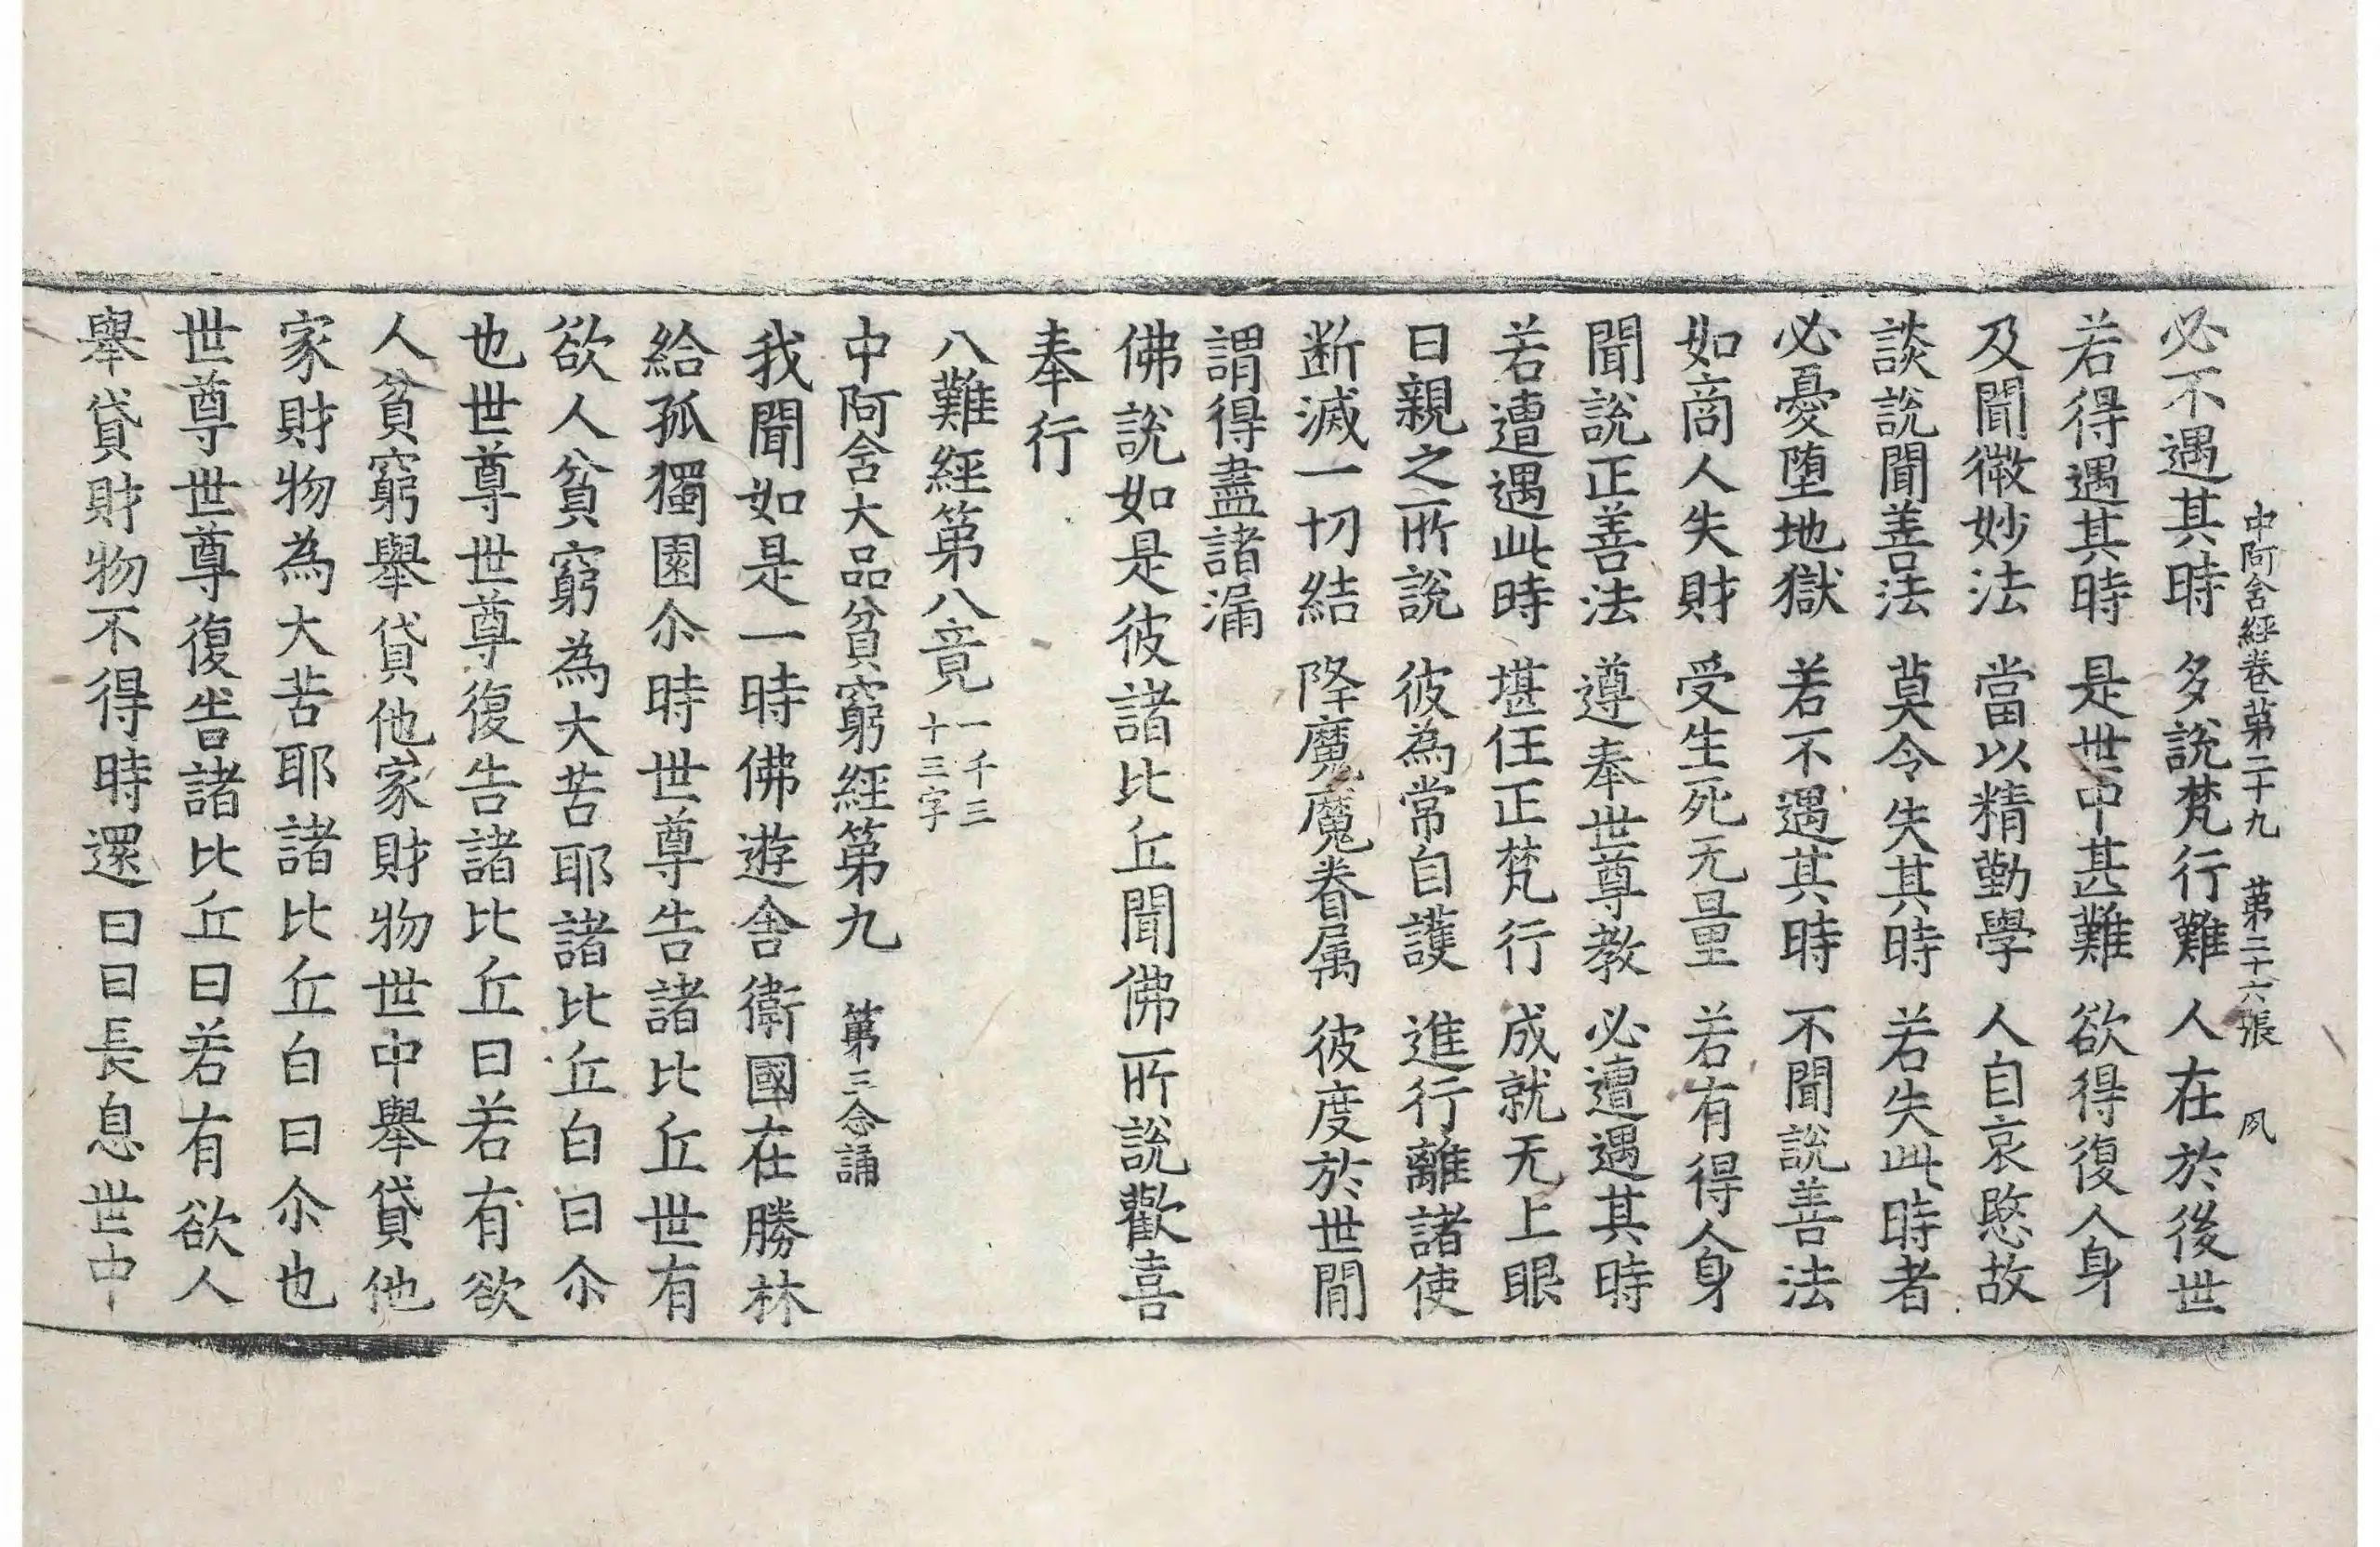 中阿含經卷第二十九　第二十六張　夙
必不遇其時　多說梵行難　人在於後世
若得遇其時　是世中甚難　欲得復人身
及聞微妙法　當以精勤學　人自哀愍故
談說聞善法　莫令失其時　若失此時者
必憂墮地獄　若不遇其時　不聞說善法
如商人失財　受生死无量　若有得人身
聞說正善法　遵奉世尊教　必遭遇其時
若遭遇此時　堪任正梵行　成就无上眼
日親之所說　彼為常自護　進行離諸使
断滅一切結　降魔魔眷属　彼度於世間
謂得盡諸漏
佛說如是彼諸比丘聞佛所說歡喜
奉行
八難經第八竟一千三十三字
中阿含大品貧窮經第九　第三念誦
我聞如是一時佛遊舍衛國在勝林
給孤獨園尒時世尊告諸比丘世有
欲人貧窮為大苦耶諸比丘白曰尒
也世尊世尊復告諸比丘曰若有欲
人貧窮舉貸他家財物世中舉貸他
家財物為大苦耶諸比丘白曰尒也
世尊世尊復告諸比丘曰若有欲人
舉貸財物不得時還曰曰長息世中